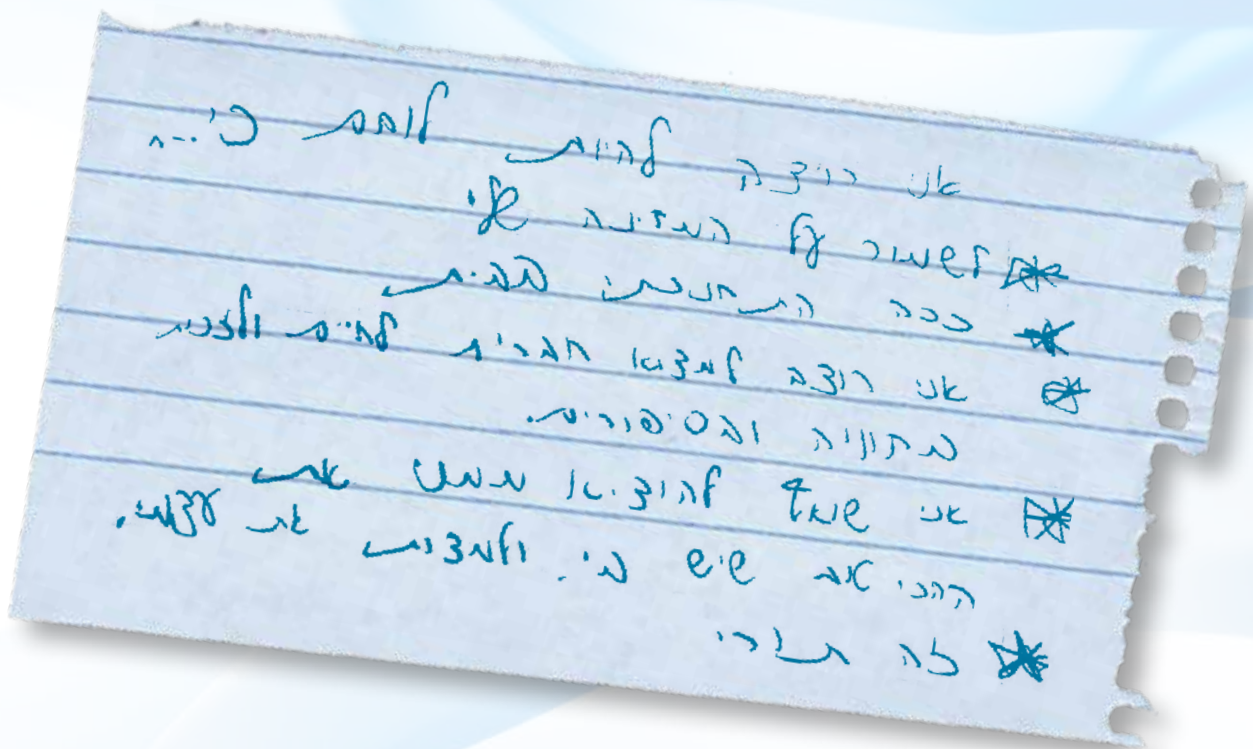 אני רוצה להיות לוחם כי...
לשמור על המדינה שלי
ככה התחנכתי מבית
אני רוצה למצוא חברים לחיים ולזכות
בחוויה ובסיפורים.
אני שואף להוציא ממני את
ההכי טוב שיש בי. ולמצות את עצמי.
זה תורי